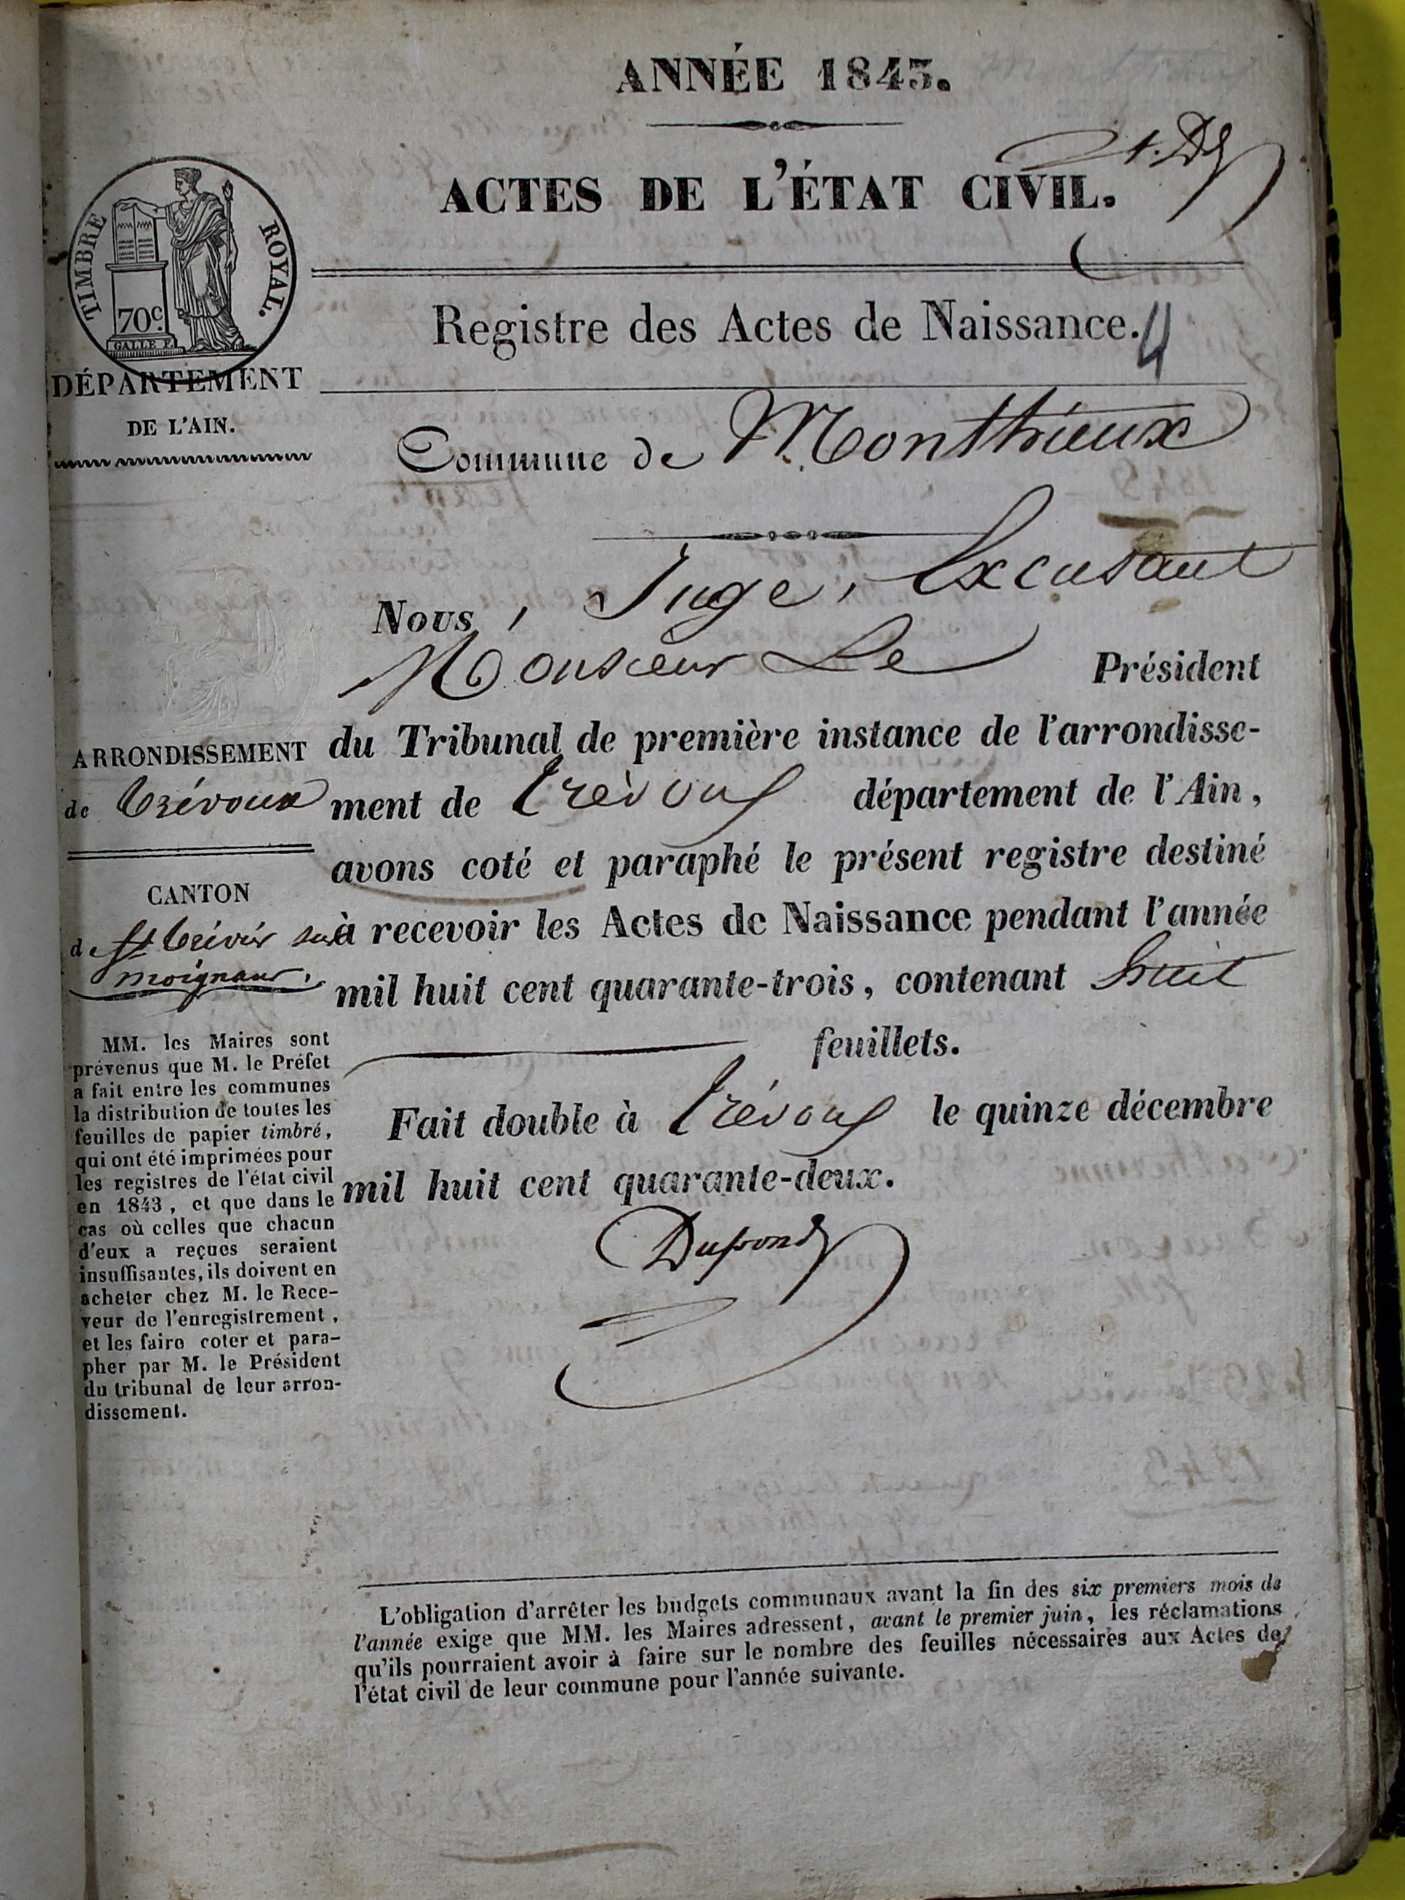 ANNÉE 1843.
ACTES DE L'ÉTAT CIVIL.
TIMBRE ROYAL.
70c.
GALLE F.
Registre des Actes de Naissance.
4
DÉPARTEMENT
DE L'AIN.
Commune de Monthieux
Nous, Juge, Excusant
Monsieur Le Président
du Tribunal de première instance de l'arrondisse-
ment de Trévoux département de l'Ain,
avons coté et paraphé le présent registre destiné
à recevoir les Actes de Naissance pendant l'année
mil huit cent quarante-trois, contenant huit
feuillets.
Fait double à Trévoux le quinze décembre
mil huit cent quarante-deux.
Dupond
ARRONDISSEMENT
de Trévoux
CANTON
de St Trivier sur
Moignans.
MM. les Maires sont
prévenus que M. le Préfet
a fait entre les communes
la distribution de toutes les
feuilles de papier timbré,
qui ont été imprimées pour
les registres de l'état civil
en 1843, et que dans le
cas où celles que chacun
d'eux a reçues seraient
insuffisantes, ils doivent en
acheter chez M. le Rece-
veur de l'enregistrement,
et les faire coter et para-
pher par M. le Président
du tribunal de leur arron-
dissement.
L'obligation d'arrêter les budgets communaux avant la fin des six premiers mois de
l'année exige que MM. les Maires adressent, avant le premier juin, les réclamations
qu'ils pourraient avoir à faire sur le nombre des feuilles nécessaires aux Actes de
l'état civil de leur commune pour l'année suivante.